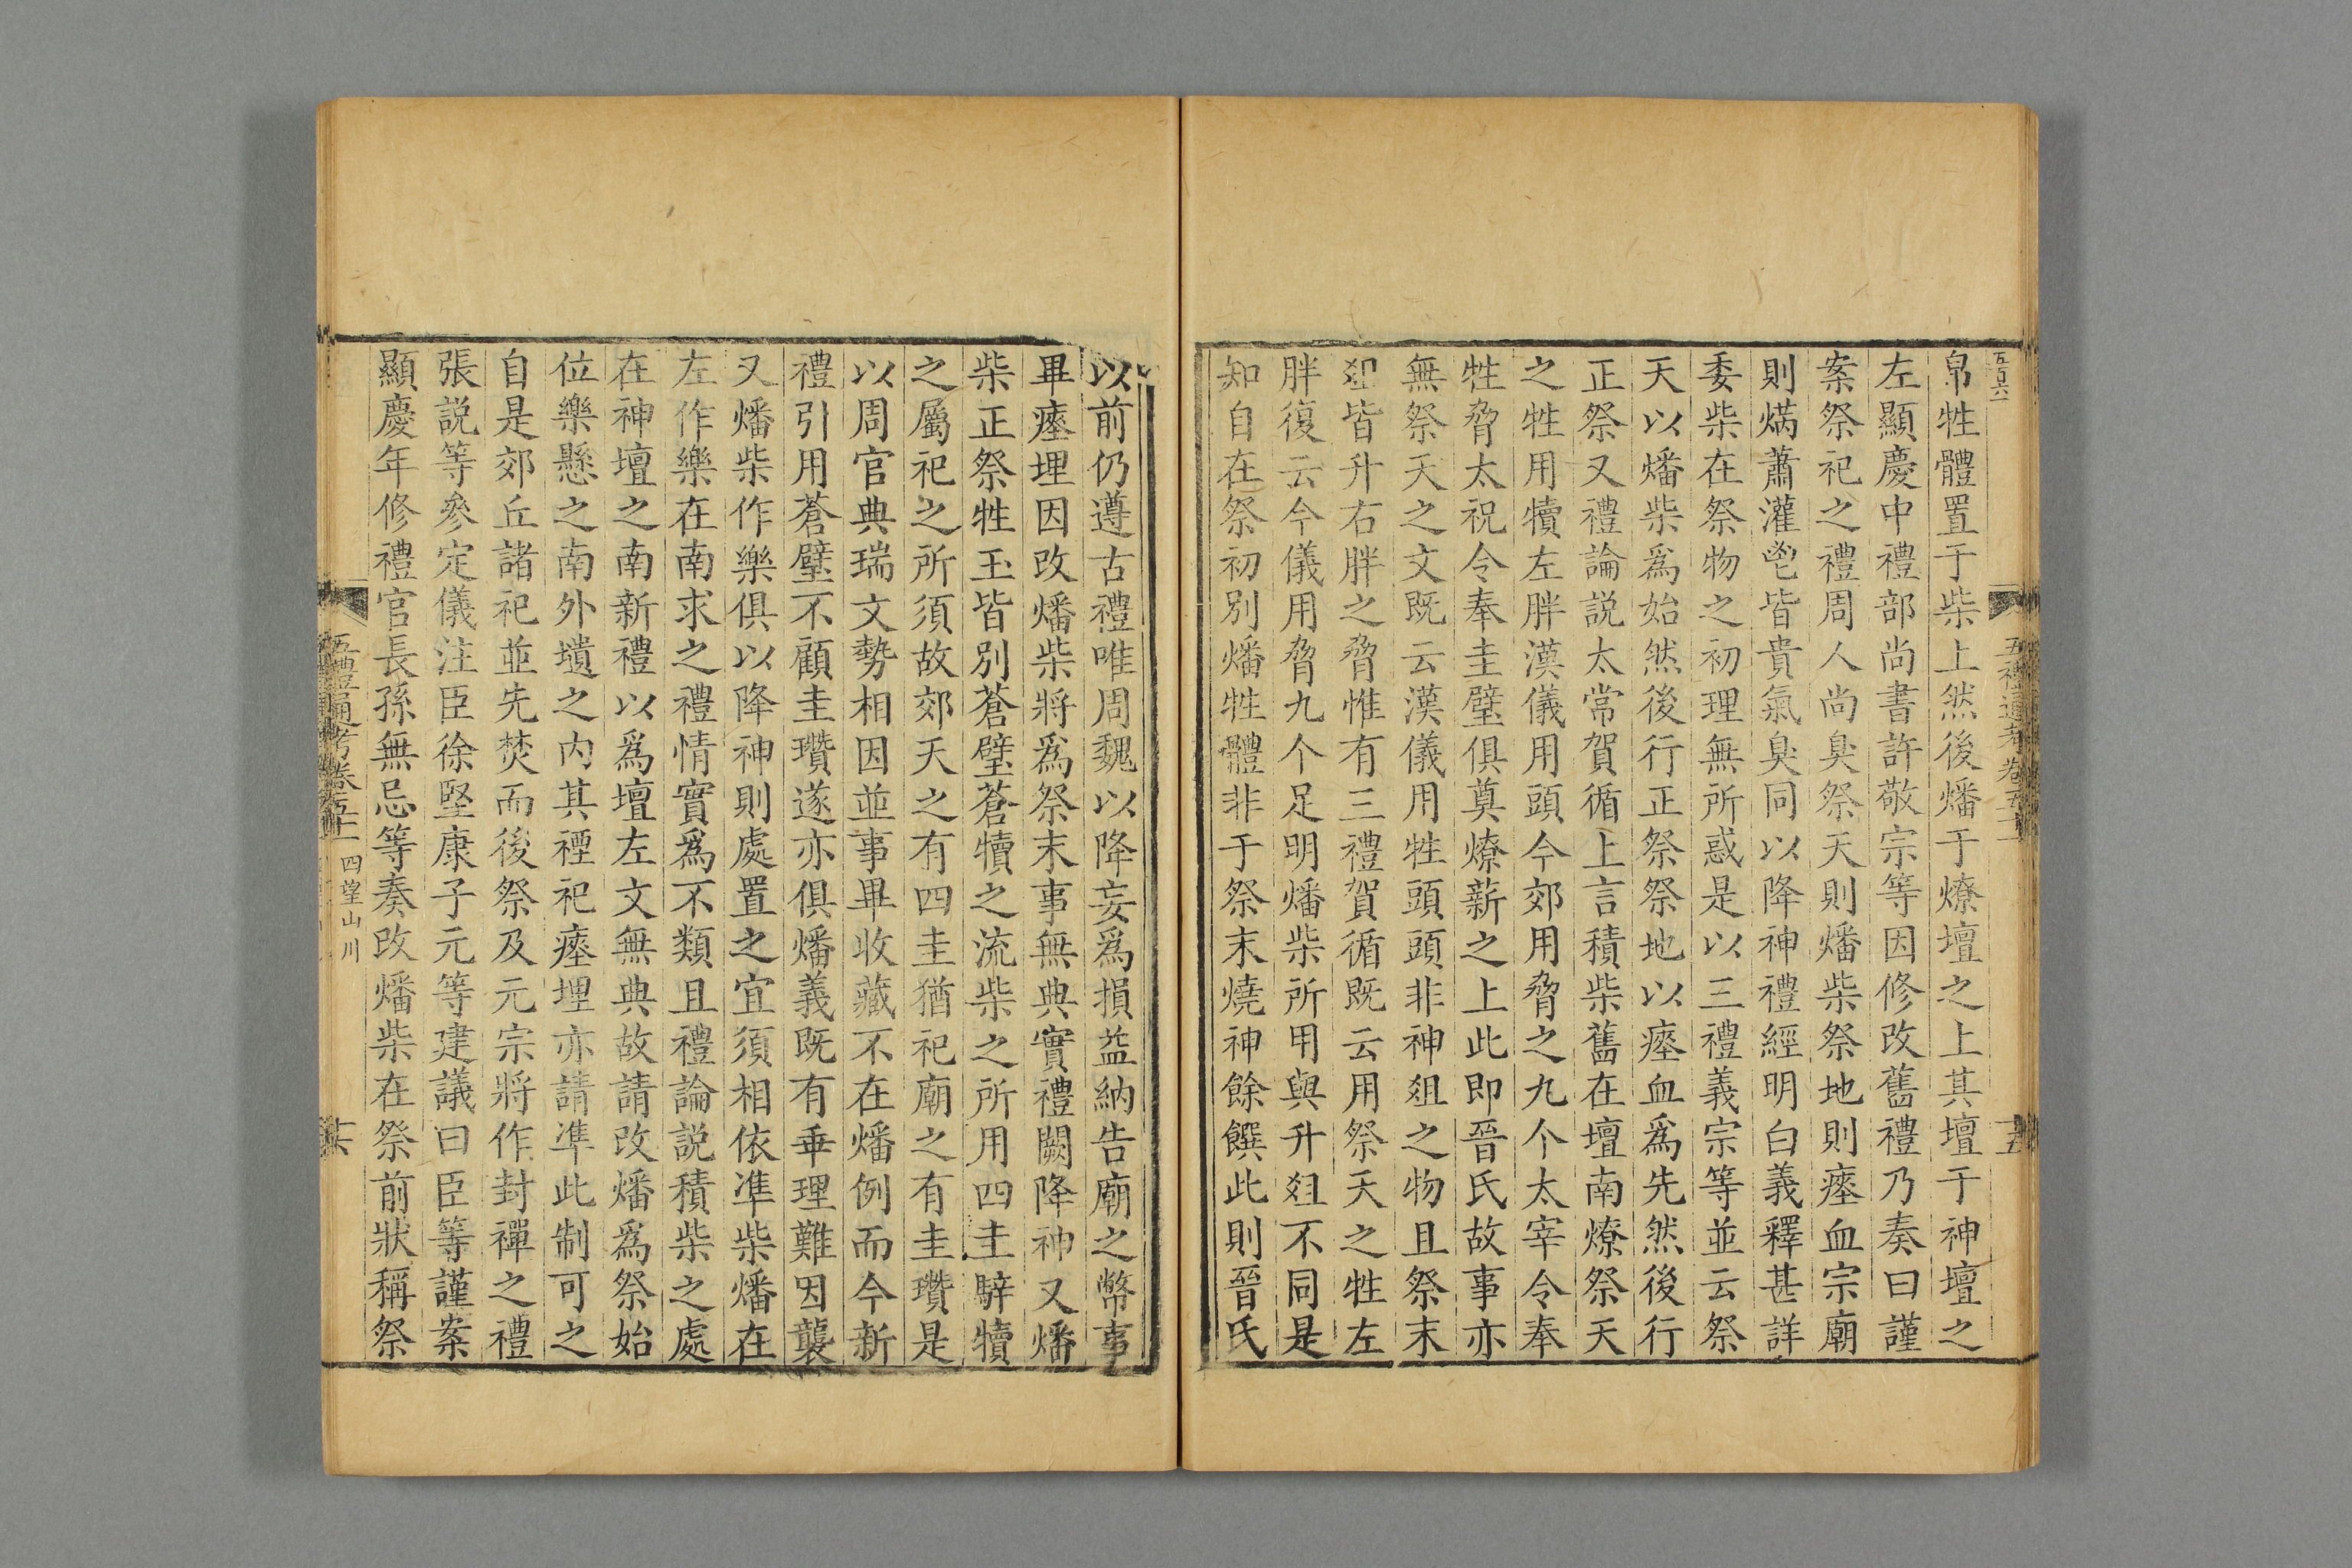 五百六
五禮通考卷五十二
十五
帛牲體置于柴上然後燔于燎壇之上其壇于神壇之
左顯慶中禮部尚書許敬宗等因修改舊禮乃奏曰謹
案祭祀之禮周人尚臭祭天則燔柴祭地則瘞血宗廟
則焫蕭灌鬯皆貴氣臭同以降神禮經明白義釋甚詳
委柴在祭物之初理無所惑是以三禮義宗等並云祭
天以燔柴爲始然後行正祭祭地以瘞血爲先然後行
正祭又禮論説太常賀循上言積柴舊在壇南燎祭天
之牲用犢左胖漢儀用頭今郊用脅之九个太宰令奉
牲脅太祝令奉圭璧俱奠燎薪之上此即晉氏故事亦
無祭天之文既云漢儀用牲頭頭非神俎之物且祭末
俎皆升右胖之脅惟有三禮賀循既云用祭天之牲左
胖復云今儀用脅九个足明燔柴所用與升俎不同是
知自在祭初別燔牲體非于祭末燒神餘饌此則晉氏
以前仍遵古禮唯周魏以降妄爲損益納告廟之幣事
畢瘞埋因改燔柴將爲祭末事無典實禮闕降神又燔
柴正祭牲玉皆別蒼璧蒼犢之流柴之所用四圭騂犢
之屬祀之所須故郊天之有四圭猶祀廟之有圭瓚是
以周官典瑞文勢相因並事畢收藏不在燔例而今新
禮引用蒼璧不顧圭瓚遂亦俱燔義既有乖理難因襲
又燔柴作樂俱以降神則處置之宜須相依凖柴燔在
左作樂在南求之禮情實爲不類且禮論説積柴之處
在神壇之南新禮以爲壇左文無典故請改燔爲祭始
位樂懸之南外壝之内其禋祀瘞埋亦請凖此制可之
自是郊丘諸祀並先焚而後祭及元宗將作封禪之禮
張説等參定儀注臣徐堅康子元等建議曰臣等謹案
顯慶年修禮官長孫無忌等奏改燔柴在祭前狀稱祭
五禮通考卷五十二 四望山川
十六